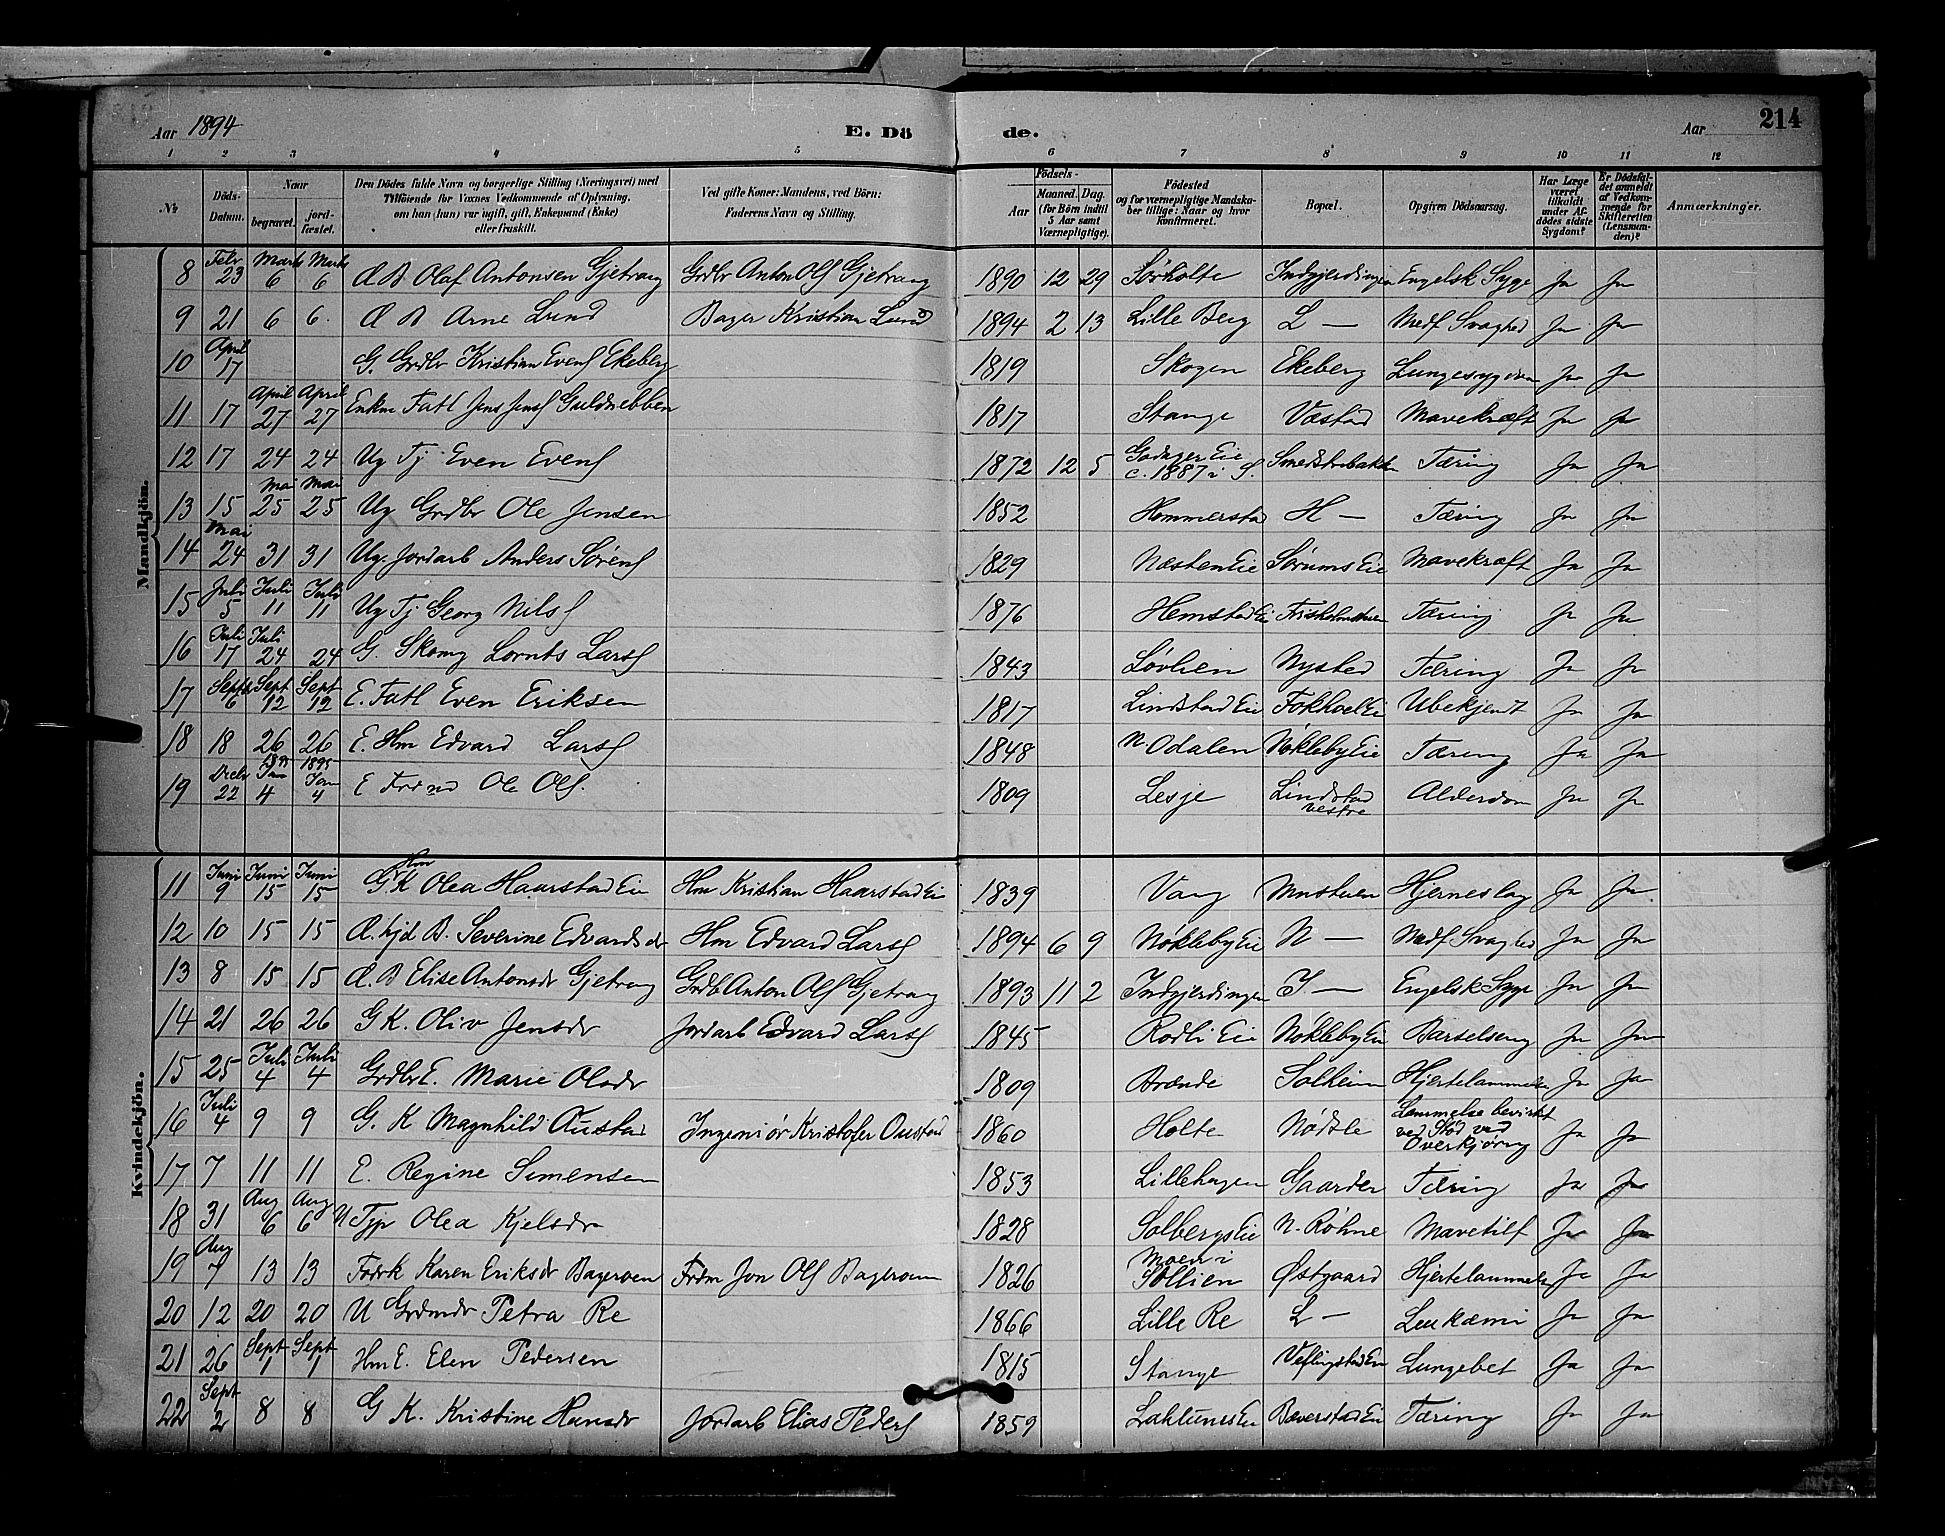 Aar 1894 E. Dö de. Aar 214
1 2 3 4 5 6 7 8 9 10 11 12
No. Döds-Datum. Naar begravet. jord-fæstet. Den Dödes fulde Navn og borgerlige Stilling (Næringsvei) med Tilföiende for Voxnes Vedkommende af Oplysning, om han (hun) var ugift, gift, Enkemand (Enke) eller fraskilt. Ved gifte Koner: Mandens, ved Börn: Faderens Navn og Stilling. Födsels- Aar Maaned. Dag. (for Börn indtil 5 Aar samt Værnepligtige). Födested og for værnepligtige Mandskaber tillige: Naar og hvor konfirmeret. Bopæl. Opgiven Dödsaarsag. Har Læge været tilkaldt under Afdödes sidste Sygdom? Er Dödsfaldet anmeldt af Vedkommende for Skifteretten (Lensmanden)? Anmærkninger.
Mandkjön.
8 Febr 23 Marts 6 Marts 6 Æ B Olaf Antonsen Gjetrang Grdbr Anton Olsf Gjetrang 1890 12 29 Sørholte Indgjerdingen Engelsk Syge Ja Ja
9 21 6 6. Æ B Arne Lund Bager Kristian Lund 1894 2 13 Lille Berg L — Medf Svaghed Ja Ja
10 April 17 G. Grdbr Kristian Evensf Ekeberg 1819 Skogen Ekeberg Lungesygdom Ja Ja
11 17 April 27 April 27 Enkm Fattl Jens Jensf Guldnebben 1817 Stange Væstad Mavekræft Ja Ja
12 17 24 24 Ug Tj Even Evensf 1872 12 5 Godager Eie c. 1887 i S. Tæring Ja Ja
13 15 Mai 25 Mai 25 Ug Grdbr Ole Jensen 1852 Hommerstad H — Tæring Ja Ja
14 Mai 24 31 31 Ug. Jordarb Anders Sörensf 1829 Næsten Eie Sörums Eie Mavekræft Ja Ja
15 Juli 5 Juli 11 Juli 11 Ug Tj Georg Nilsf 1876 Hemstad Ei Tæring Ja Ja
16 Juli 17 Juli 24 24 G. Skomg Lornts Larsf 1843 Løvlien Nysted Tæring Ja Ja
17 Septr 6 Sept 12 Sept 12 E. Fattl Even Eriksen 1817 Lindstad Eie Fokhoel Ei Ubekjendt Ja Ja
18 18 26 26 E. Hm Edvard Larsf 1848 N. Odalen Nökleby Eie Tæring Ja Ja
19 Decbr 22 1895 Jan 4 1895 Jan 4 E Ole Olsf. 1809 Lesje Lindstad vestre Alderdom Ja Ja
Kvindekjön.
11 Juni 9 Juni 15 Juni 15 G Hm K Olea Haarstad Eie Hm Kristian Haarstad Ei 1839 Vang Hjerneslag Ja Ja
12 10 15 15 Æ. hjd B. Severine Edvardsdr Hm Edvard Larsf 1894 6 9 Nökleby Eie N — Medf Svaghed Ja Ja
13 8 15 15 Æ. B Elise Antonsdr Gjetrang Grdb Anton Olsf Gjetrang 1893 11 2 Indgjerdingen I — Engelsk Syge Ja Ja
14 21 26 26 G K. Oliv Jensdr Jordarb Edvard Larsf 1845 Rodli Eie Nökleby Eie Barselseng Ja Ja
15 25 Juli 4 Juli 4 Grdbr E. Marie Olsdr 1809 Brænde Solheim Hjertelammelse Ja Ja
16 Juli 4 9 9 G. K Magnhild Austad Ingeniör Kristofer Oustad 1860 Holte Nödsle Lammelse bevirket ved Stød ved Overkjøring Ja Ja
17 7 11 11 E. Regine Simensen 1853 Lillehagen Gaarder Tæring Ja Ja
18 31 Aug 6 Aug 6 U Tjp Olea Kjelsdr 1828 Solbergs Eie N. Röhne Mavetilf Ja Ja
19 Aug 7 13 13 Fodrk Karen Eriksdr Bageroen Frdm Jon Olsf Bageroen 1826 Moen i Sollien Østgaard Hjertelammelse Ja Ja
20 12 20 20 U Grdmdr Petra Re 1866 Lille Re L — Leukæmi Ja Ja
21 26 Sept 1 Sept 1 Hm E. Elen Pedersen 1815 Stange Veflingstad Eie Lungebet Ja Ja
22 Sept 2 8 8 G K. Kristine Hansdr Jordarb Elias Pedersf 1859 Laktums Eie Bæverstad Eie Tæring Ja Ja